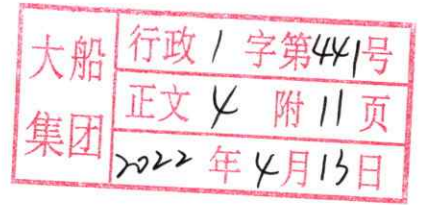 大船集团
行政1字第441号
正文4 附11页
2022年4月13日